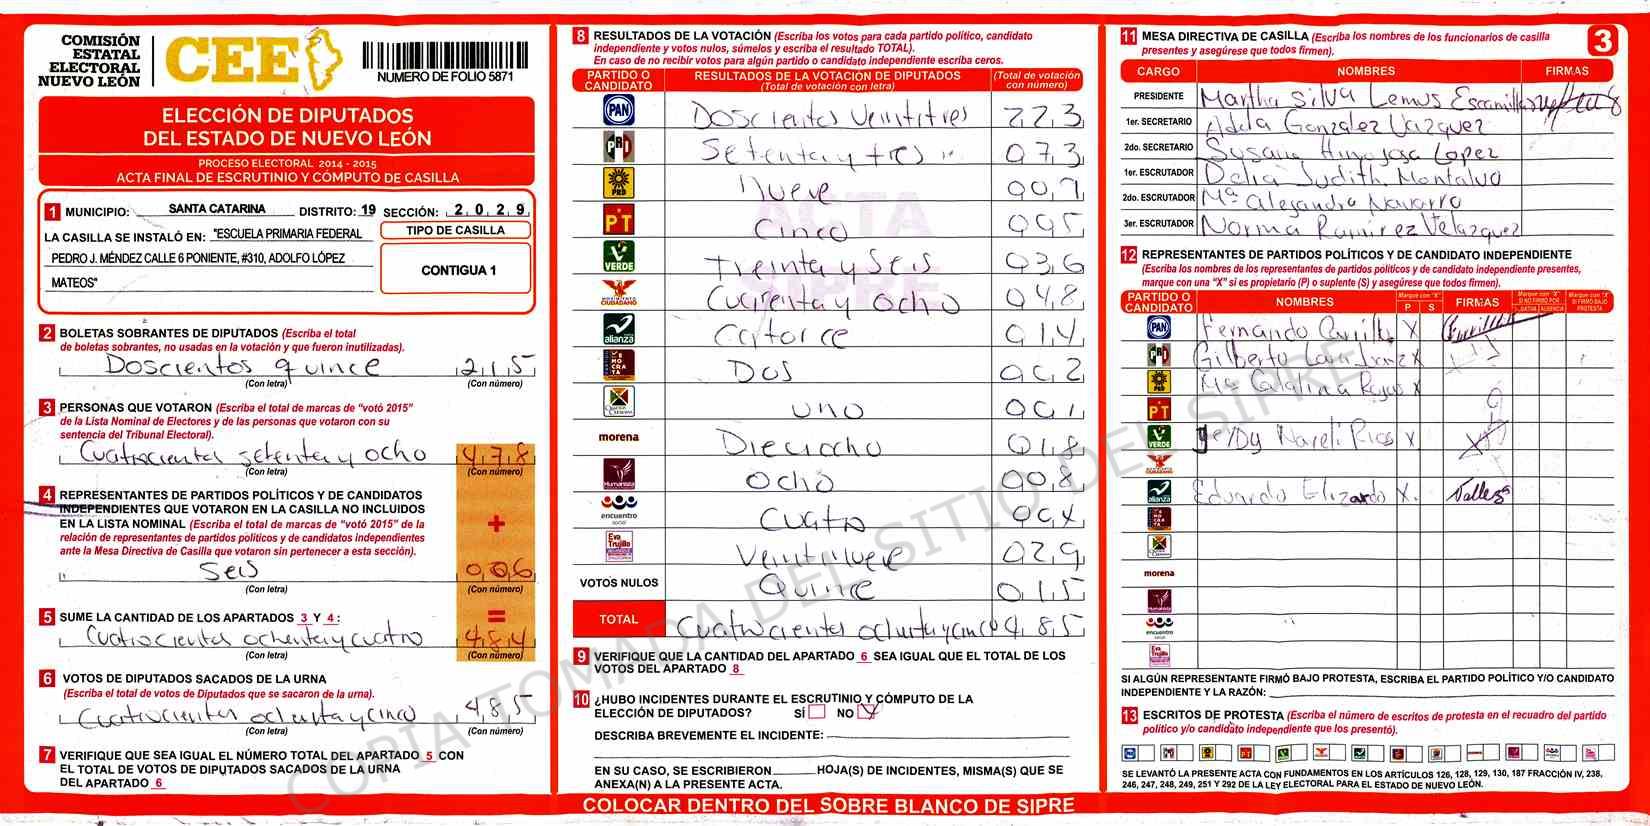 COMISIÓN
ESTATAL
ELECTORAL
NUEVO LEÓN
CEE
NUMERO DE FOLIO 5871
ELECCIÓN DE DIPUTADOS
DEL ESTADO DE NUEVO LEÓN
PROCESO ELECTORAL 2014 - 2015
ACTA FINAL DE ESCRUTINIO Y CÓMPUTO DE CASILLA
1 MUNICIPIO: SANTA CATARINA DISTRITO: 19 SECCIÓN: 2029
LA CASILLA SE INSTALÓ EN: "ESCUELA PRIMARIA FEDERAL
PEDRO J. MÉNDEZ CALLE 6 PONIENTE, #310, ADOLFO LÓPEZ
MATEOS"
TIPO DE CASILLA
CONTIGUA 1
2 BOLETAS SOBRANTES DE DIPUTADOS (Escriba el total
de boletas sobrantes, no usadas en la votación y que fueron inutilizadas).
Doscientos quince 215
(Con letra) (Con número)
3 PERSONAS QUE VOTARON (Escriba el total de marcas de "votó 2015"
de la Lista Nominal de Electores y de las personas que votaron con su
sentencia del Tribunal Electoral).
Cuatrocientos setenta y ocho 478
(Con letra) (Con número)
4 REPRESENTANTES DE PARTIDOS POLÍTICOS Y DE CANDIDATOS
INDEPENDIENTES QUE VOTARON EN LA CASILLA NO INCLUIDOS
EN LA LISTA NOMINAL (Escriba el total de marcas de "votó 2015" de la
relación de representantes de partidos políticos y de candidatos independientes
ante la Mesa Directiva de Casilla que votaron sin pertenecer a esta sección).
+
Seis 006
(Con letra) (Con número)
5 SUME LA CANTIDAD DE LOS APARTADOS 3 Y 4 : =
Cuatrocientos ochenta y cuatro 484
(Con letra) (Con número)
6 VOTOS DE DIPUTADOS SACADOS DE LA URNA
(Escriba el total de votos de Diputados que se sacaron de la urna).
Cuatrocientos ochenta y cinco 485
(Con letra) (Con número)
7 VERIFIQUE QUE SEA IGUAL EL NÚMERO TOTAL DEL APARTADO 5 CON
EL TOTAL DE VOTOS DE DIPUTADOS SACADOS DE LA URNA
DEL APARTADO 6
8 RESULTADOS DE LA VOTACIÓN (Escriba los votos para cada partido político, candidato
independiente y votos nulos, súmelos y escriba el resultado TOTAL).
En caso de no recibir votos para algún partido o candidato independiente escriba ceros.
PARTIDO O CANDIDATO RESULTADOS DE LA VOTACIÓN DE DIPUTADOS (Total de votación con letra) (Total de votación con número)
PAN Doscientos Veintitres 223
PRI Setenta y tres 073
PRD Nueve 009
PT Cinco 005
VERDE Treinta y Seis 036
MOVIMIENTO CIUDADANO Cuarenta y ocho 048
alianza Catorce 014
DEMOCRATA Dos 002
uno 001
morena Dieciocho 018
Humanista Ocho 008
encuentro social Cuatro 004
Eva Trujillo Veintinueve 029
VOTOS NULOS Quince 015
TOTAL Cuatrocientos ochenta y cinco 485
ACTA
SIPRE
9 VERIFIQUE QUE LA CANTIDAD DEL APARTADO 6 SEA IGUAL QUE EL TOTAL DE LOS
VOTOS DEL APARTADO 8
10 ¿HUBO INCIDENTES DURANTE EL ESCRUTINIO Y CÓMPUTO DE LA
ELECCIÓN DE DIPUTADOS? SÍ NO X
DESCRIBA BREVEMENTE EL INCIDENTE:
EN SU CASO, SE ESCRIBIERON HOJA(S) DE INCIDENTES, MISMA(S) QUE SE
ANEXA(N) A LA PRESENTE ACTA.
COLOCAR DENTRO DEL SOBRE BLANCO DE SIPRE
11 MESA DIRECTIVA DE CASILLA (Escriba los nombres de los funcionarios de casilla
presentes y asegúrese que todos firmen).
3
CARGO NOMBRES FIRMAS
PRESIDENTE Martha Silva Lemus Escamilla
1er. SECRETARIO Adela Gonzalez Vazquez
2do. SECRETARIO Susana Hinojosa Lopez
1er. ESCRUTADOR Delia Judith Montalvo
2do. ESCRUTADOR Ma Alejandra Navarro
3er. ESCRUTADOR Norma Ramirez Velazquez
12 REPRESENTANTES DE PARTIDOS POLÍTICOS Y DE CANDIDATO INDEPENDIENTE
(Escriba los nombres de los representantes de partidos políticos y de candidato independiente presentes,
marque con una "X" si es propietario (P) o suplente (S) y asegúrese que todos firmen).
PARTIDO O CANDIDATO NOMBRES Marque con "X" P S FIRMAS Marque con "X" SI NO FIRMÓ POR NEGATIVA AUSENCIA Marque con "X" SI FIRMÓ BAJO PROTESTA
PAN Fernando X
PRI Gilberto X
PRD Ma Catalina Rojas X
PT
VERDE Yeydy Nareli Rios X
alianza Eduardo Elizardo X
morena
Humanista
encuentro social
Eva Trujillo
SI ALGÚN REPRESENTANTE FIRMÓ BAJO PROTESTA, ESCRIBA EL PARTIDO POLÍTICO Y/O CANDIDATO
INDEPENDIENTE Y LA RAZÓN:
13 ESCRITOS DE PROTESTA (Escriba el número de escritos de protesta en el recuadro del partido
político y/o candidato independiente que los presentó).
SE LEVANTÓ LA PRESENTE ACTA CON FUNDAMENTOS EN LOS ARTÍCULOS 126, 128, 129, 130, 187 FRACCIÓN IV, 238,
246, 247, 248, 249, 251 Y 292 DE LA LEY ELECTORAL PARA EL ESTADO DE NUEVO LEÓN.
COPIA TOMADA DEL SITIO DEL SIPRE